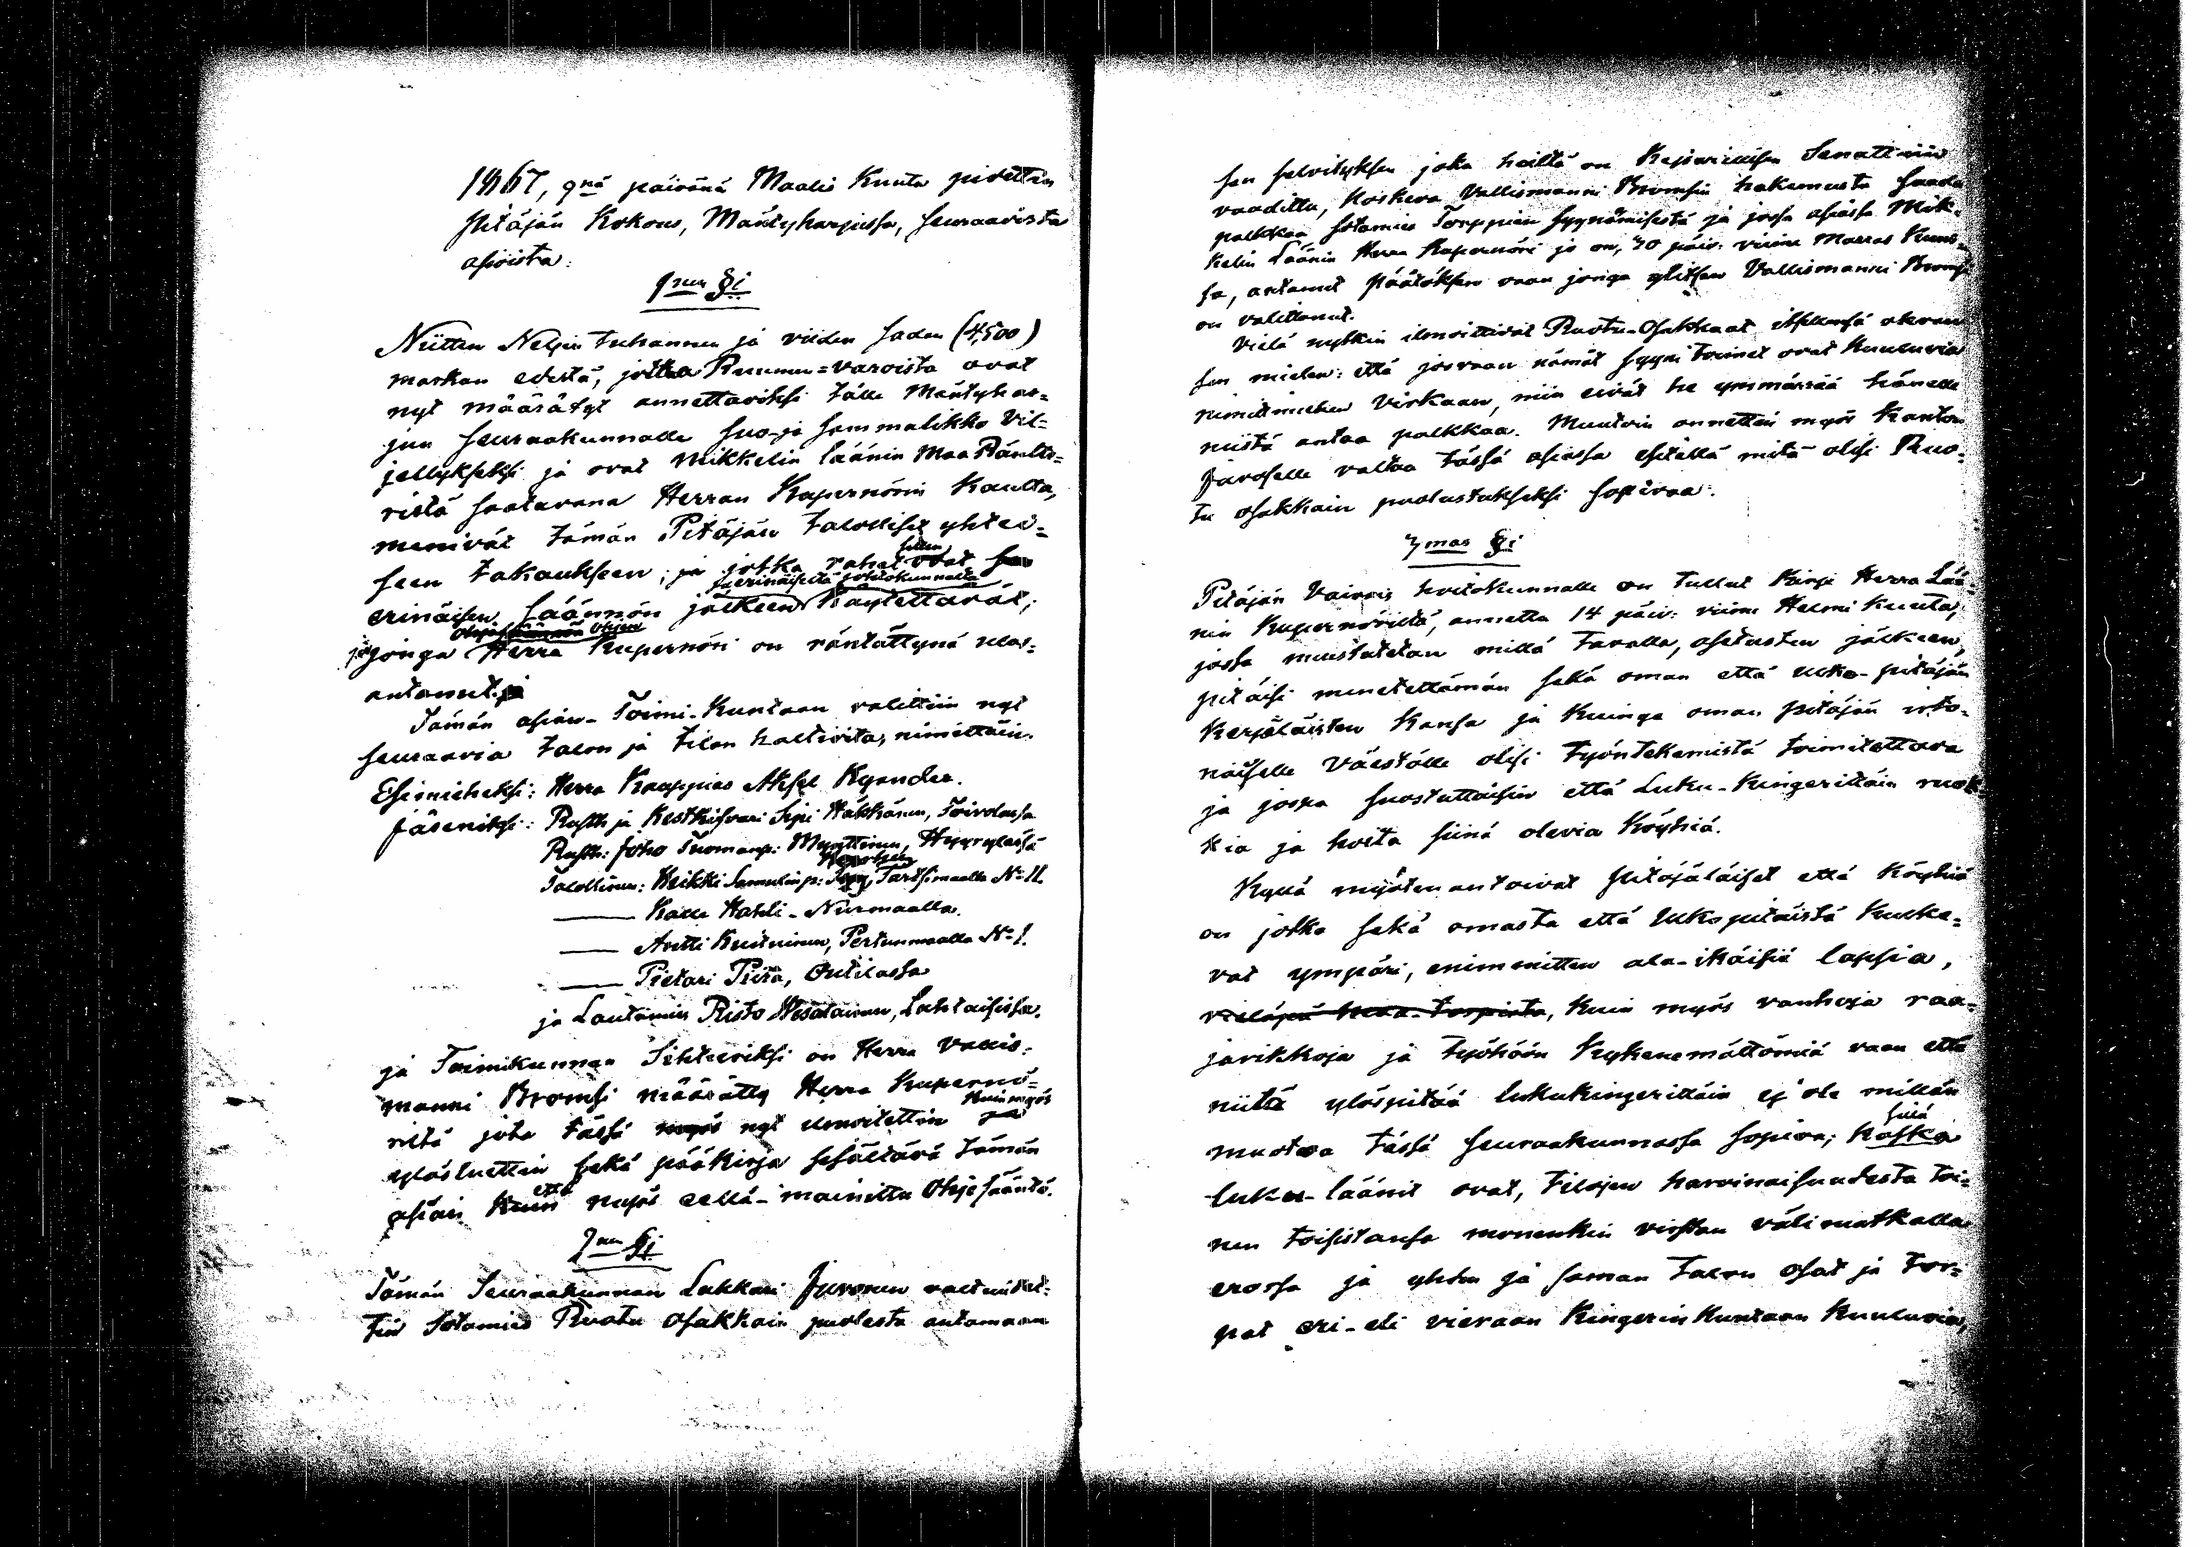 1867, 9nä päivänä Maalis Kuuta pidettin
Pitäjän Kokous, Mäntyharjussa, seuraavista
asioista:
1nen §i
Niitten Neljän tuhannen ja viiden sadan (4,500)
markan edestä, jotka Ruunun=varoista ovat
nyt määrätyt annettaviksi tälle Mäntyhar=
jun seuraakunnalle suo-ja sammalikko vil=
jellykseksi ja ovat Mikkelin läänin Maa Räntte=
ristä saatavana Herran Kupernörin kautta,
menivät tämän Pitäjän talolliset yhtei=
seen takaukseen; ja jotka rahat sitten
erinäisen säännön jälkeen erinäiseltä johtokunnalta käytettävät;
ja jonga ohjesäännön Herra Kupernöri on räntättynä ulos=
antanut.
Tämän asian-Toimi-Kuntaan valittiin nyt
seuraavia talon ja tilan haltioita, nimittäin.
Esimieheksi: Herra Kauppias Aksel Kyander.
Jäseniksi: Rusth. ja Kestkisvari Sipi Häkkänen, Toivolassa
Rusth: Joho Tuomanp: Mynttinen, Hyyrylässä
Talollinen: Heikki Samulinp: Tartsimaalla No 11.
—— Kalle Hahli-Nurmaalla.
—— Antti Kuitunen, Pertunmaalla No 1.
—— Pietari Piira, Outilassa
ja Lautamies Risto Wesalainen, Lahtaisissa.
ja Toimikunnan Sihteeriksi on Herra Vallis=
manni Bromsi määrätty Herra Kupernö=
riltä jota tässä nyt ilmoitettin kuin myös
ylösluettin sekä pääkirja sisältävä tämän
asian että myös sellä-mainittu Ohjesääntö.
2nen §i
Tämän Seuraakunnan Lukkari Juvonen valtuutet=
tin Sotamies Ruotu Osakkain puolesta antamaan
sen selvityksen joka heiltä on Keisarillisen Senattiin
vaadittu, koskeva Vallismanni Bromsin hakemusta saada
palkkaa sotamies Torppien syynämisestä ja jossa asiassa Mik=
kelin Läänin Herra Kupernöri jo on, 30 päiv. viime Marras Kuus=
sa, antanut Päätöksen vaan jonga ylitsen Vallismanni Bromsi
on valittanut.
Vielä nytkin ilmoittivat Ruotu-Osakkaat itsellensä olevan
sen mielen: että jos vaan nämät syyni toimet ovat kuuluvia
nimitmiehen Virkaan, niin eivät he ymmärrää hänelle
niistä antaa palkkaa. Muutoin annettin myös Kantori
Juvoselle valtaa tässä asiassa esitellä mitä olisi Ruo=
tu osakkain puolustukseksi sopivaa.
3mas §i
Pitäjän Vaivais hoitokunnalle on tullut Kirje Herra Lää=
nin Kupernöriltä, annettu 14 päiv: viime Helmi kuuta,
jossa muistutetan millä tavalla, asetusten jälkeen,
pitäisi menetettämän sekä oman että ulko-pitäjän
Kerjäläisten kansa ja kuinga oman pitäjän irto=
naiselle Väestölle olisi työntekemistä toimitettava
ja jospa suostuttaisiin että Luku-Kingerittäin ruok=
kia ja hoita siinä olevia Köyhiä.
Kyllä myöten antoivat Pitäjäläiset että Köyhiä
on jotka sekä omasta että ulkopitäistä kulke=
vat ympäri, enimmitten ala-ikäisiä lapsia,
kuin myös vanhoja raa=
jarikkoja ja työhöön kykenemättömiä vaan että
niitä ylöspitää lukukingerittäin ej ole millän
muotoa tässä seuraakunnassa sopiva; sillä
luku-läänit ovat, tilojen harvinaisuudesta toi=
nen toisistansa monenkin virstan välimatkalla
erossa ja yhden ja saman talon osat ja tor=
pat eri-eli vieraan Kingerin Kuntaan kuuluvia,